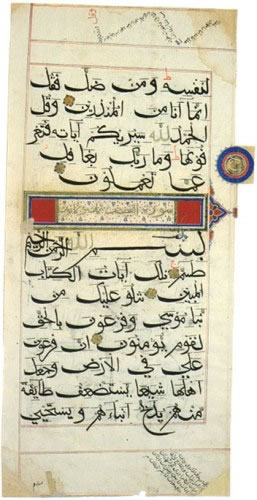 لنفسه ومن ضل فقل
انما انا من المنذرين وقل
الحمد لله سيريكم آياته فتعر
فونها وما ربك بغافل
عما تعملون
سورة القصص
بسم الله الرحمن الرحيم
طسم تلك آيات الكتاب
المبين نتلو عليك من
نبا موسى وفرعون بالحق
لقوم يؤمنون ان فرعون
علا في الارض وجعل
اهلها شيعا يستضعف طايفة
منهم يذبح ابناءهم ويستحيي